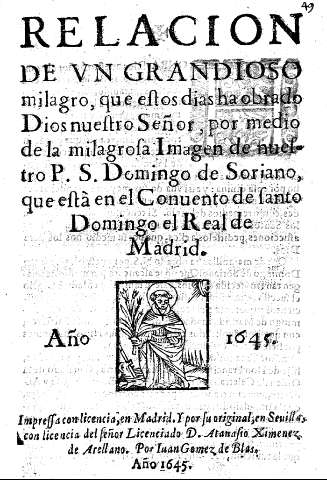 49
RELACION
DE VN GRANDIOSO
milagro, que estos dias ha obrado
Dios nuestro Señor, por medio
de la milagrosa Imagen de nues-
tro P. S. Domingo de Soriano,
que està en el Conuento de santo
Domingo el Real de
Madrid.
Año 1645.
Impressa con licencia, en Madrid. Y por su original, en Seuilla,
con licencia del señor Licenciado D. Atanasio Ximenez
de Arellano. Por Iuan Gomez de Blas.
Año 1645.